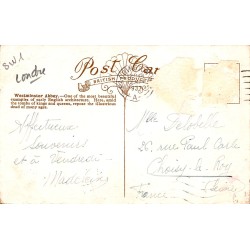 SW1
Londre
Post Card
BRITISH PRODUCTION
Westminster Abbey.—One of the most beautiful
examples of early English architecture. Here, amid
the tombs of kings and queens, repose the illustrious
dead of many ages.
Affectueux
Souvenirs
et à Vendredi
Mlle
20, rue Paul Carle
Choisy-le-Roy
France